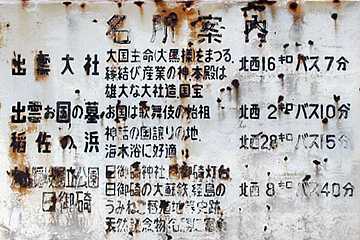 名所案内
出雲大社
大国主命(大黒様)をまつる。
縁結び産業の神本殿は
雄大な大社造国宝
北西16キロバス7分
出雲お国の墓
お国は歌舞伎の始祖
北西2キロバス10分
稲佐の浜
神話の国譲りの地。
海水浴に好適
北西28キロバス15分
国立公園
日御碕
日御碕神社日御碕灯台
日御碕の大蘇鉄経島の
うみねこ蕃殖地等史跡
天然記念物名勝
北西8キロバス40分